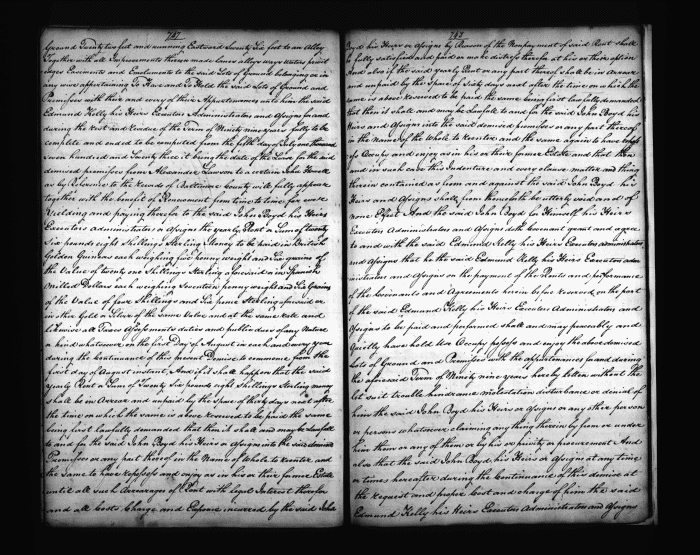 747
Ground Twenty two feet and running Eastward Twenty Six feet to an Alley
Together with all Improvements thereon made lanes alleys ways waters privil
eges Easements and Emoluments to the said Lots of Ground belonging or in
any wise appertaining To Have and To Hold the said Lots of Ground and
Premisses with their and every of their Appurtenances unto him the said
Edmund Kelly his Heirs Executors Administrators and Assigns for and
during the rest and residue of the Term of Ninety nine years fully to be
complete and ended to be computed from the fifth day of July one thousand
seven hundred and Twenty three it being the date of the Lease for the said
demised premises from Alexander Lawson to a certain John Howell
as by Reference to the records of Baltimore County will fully appear
together with the benefit of Renewment from time to time for ever
Yielding and paying therefor to the said John Boyd his Heirs
Executors Administrators or Assigns the yearly Rent or Sum of twenty
Six pounds eight Shillings Sterling Money to be paid in British
Golden Guineas each weighing five penny weight and Six grains of
the Value of twenty one Shillings Sterling aforesaid or in Spanish
Milled Dollars each weighing Seventeen penny weight and Six Grains
of the Value of four Shillings and Six pence Sterling aforesaid or
in other Gold or Silver of the same Value and at the same rate and
likewise all Taxes Assessments duties and public dues of any Nature
or kind whatsoever on the first Day of August in each and every year
during the Continuance of this present Demise to commence from the
first day of August instant And if it shall happen that the said
yearly Rent or Sum of Twenty Six pounds eight Shillings Sterling money
shall be in Arrear and unpaid by the Space of thirty days next after
the time on which the same is above reserved to be paid the same
being first lawfully demanded that then it shall and may be lawful
to and for the said John Boyd his Heirs or Assigns into the said demised
Premisses or any part thereof in the Name of the Whole to reenter and
the same to have repossess and enjoy as in his or their former Estate
untill all such Arrearages of Rent with legal Interest therefor
and all Costs Charge and Expence incurred by the said John
748
Boyd his Heirs or Assigns by Reason of the Nonpayment of said Rent shall
be fully satisfied and paid or make distress therefor at his or their option
And also if the said yearly Rent or any part thereof shall be in Arrear
and unpaid by the Space of Sixty days next after the time on which the
same is above reserved to be paid the same being first lawfully demanded
that then it shall and may be Lawful to and for the said John Boyd his
Heirs and Assigns into the said demised premisses or any part thereof
in the Name of the Whole to reenter and the same again to have
Occupy and enjoy as in his or their former Estate and that then
and in such case this Indenture and every clause matter and thing
therein contained as from and against the said John Boyd his
Heirs and Assigns shall from thenceforth be utterly void and of
none Effect And the said John Boyd for Himself his Heirs
Executors Administrators and Assigns doth Covenant grant and agree
to and with the said Edmund Kelly his Heirs Executors administrators
and Assigns that he the said Edmund Kelly his Heirs Executors adm
inistrators and Assigns on the payment of the Rents and performance
of the Covenants and Agreements herein before reserved on the part
of the said Edmund Kelly his Heirs Executors Administrators and
Assigns to be paid and performed shall and may peaceably and
Quietly have hold Use Occupy possess and enjoy the above demised
Lots of Ground and Premisses with the appurtenances for and during
the aforesaid Term of Ninety nine years hereby letten without the
let suit trouble hindrance molestation disturbance or denial of
him the said John Boyd his Heirs or Assigns or any other person
or persons whatsoever claiming any thing therein by from or under
him them or any of them or by his or privity or procurement And
also that the said John Boyd his Heirs or Assigns at any time
or times hereafter during the Continuance of this demise at
the request and proper Cost and charge of him the said
Edmund Kelly his Heirs Executors Administrators and Assigns